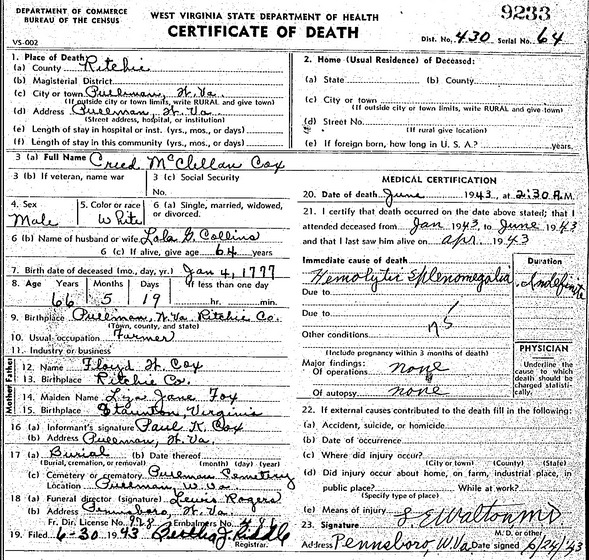 DEPARTMENT OF COMMERCE
BUREAU OF THE CENSUS
WEST VIRGINIA STATE DEPARTMENT OF HEALTH
CERTIFICATE OF DEATH
9233
VS-002
Dist. No. 430 Serial No. 64
1. Place of Death
(a) County Ritchie
(b) Magisterial District
(c) City or town Pullman, W. Va.
(If outside city or town limits, write RURAL and give town)
(d) Address Pullman, W. Va.
(Street address, hospital, or institution)
(e) Length of stay in hospital or inst. (yrs., mos., or days)
(f) Length of stay in this community (yrs., mos., or days)
2. Home (Usual Residence) of Deceased:
(a) State (b) County
(c) City or town
(If outside city or town limits, write RURAL and give town)
(d) Street No.
(If rural give location)
(e) If foreign born, how long in U. S. A.? years.
3 (a) Full Name Creed McClellan Cox
3 (b) If veteran, name war
3 (c) Social Security
No.
4. Sex
Male
5. Color or race
White
6 (a) Single, married, widowed,
or divorced.
6 (b) Name of husband or wife Lola G. Collins
6 (c) If alive, give age 64 years
7. Birth date of deceased (mo., day, yr.) Jan 4, 1777
8. Age Years Months Days If less than one day
66 5 19 hr. min.
9. Birthplace Pullman, W. Va. Ritchie Co.
(Town, county, and state)
10. Usual occupation Farmer
11. Industry or business
Father
12. Name Floyd W. Cox
13. Birthplace Ritchie Co.
Mother
14. Maiden Name Liza Jane Fox
15. Birthplace Staunton, Virginia
16 (a) Informant's signature Paul K. Cox
(b) Address Pullman, W. Va.
17 (a) Burial (b) Date thereof
(Burial, cremation, or removal) (month) (day) (year)
(c) Cemetery or crematory Pullman Cemetery
Location Pullman W. Va.
18 (a) Funeral director (signature) Lewis Rogers
(b) Address Pennsboro, W. Va.
Fr. Dir. License No. 928 Embalmers No.
19. Filed 6-30 1943 Riddle
Registrar.
MEDICAL CERTIFICATION
20. Date of death June 1943, at 2:30 A.M.
21. I certify that death occurred on the date above stated; that I
attended deceased from Jan 1943, to June 1943
and that I last saw him alive on apr. 1943
Immediate cause of death
Hemolytic Splenomegalia
Duration
Indefinite
Due to
Due to
Other conditions
(Include pregnancy within 3 months of death)
Major findings:
Of operations none
Of autopsy none
PHYSICIAN
Underline the cause to which death should be charged statistically.
22. If external causes contributed to the death fill in the following:
(a) Accident, suicide, or homicide
(b) Date of occurrence
(c) Where did injury occur?
(City or town) (County) (State)
(d) Did injury occur about home, on farm, industrial place, in
public place? While at work?
(Specify type of place)
(e) Means of injury
23. Signature S. E. Walton MD
M. D. or other
Address Pennsboro, W. Va Date signed 6/24/43